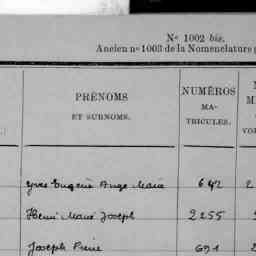 Nº 1002 bis.
Ancien nº 1003 de la Nomenclature
PRÉNOMS
ET SURNOMS.
NUMÉROS
MA-
TRICULES.
Yves Eugène Ange Marie 642 2
Henri Marie Joseph 2255
Joseph Pierre 691 2